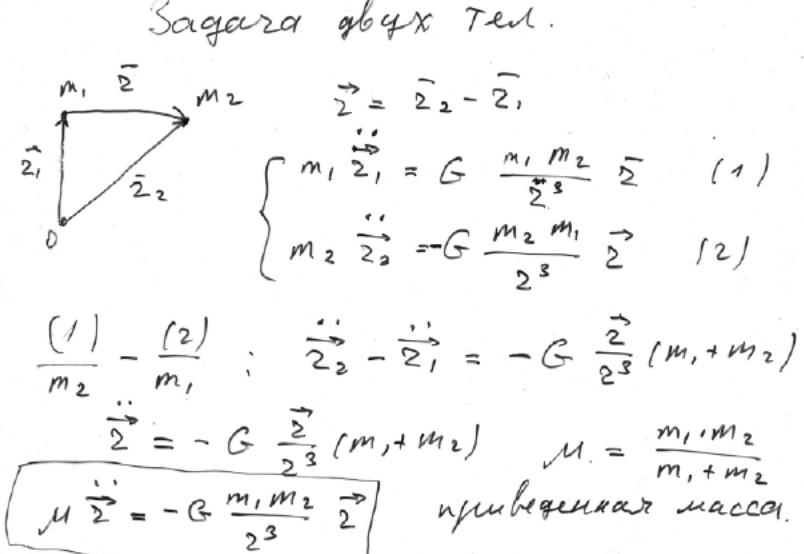 Задача двух тел.
m₁ r̄ m₂
r⃗₁ r̄₂
0
r⃗ = r̄₂ - r̄₁
m₁ r⃗̈₁ = G (m₁ m₂)/(r³) r̄ (1)
m₂ r⃗̈₂ = -G (m₂ m₁)/(r³) r⃗ (2)
(1)/m₂ - (2)/m₁ ; r⃗̈₂ - r⃗̈₁ = - G r⃗/r³ (m₁ + m₂)
r⃗̈ = - G r⃗/r³ (m₁ + m₂) μ = (m₁·m₂)/(m₁ + m₂)
μ r⃗̈ = - G (m₁ m₂)/(r³) r⃗ приведенная масса.